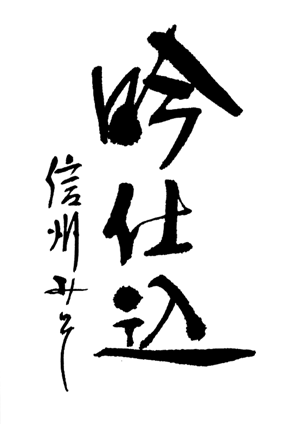 吟仕込
信州みそ